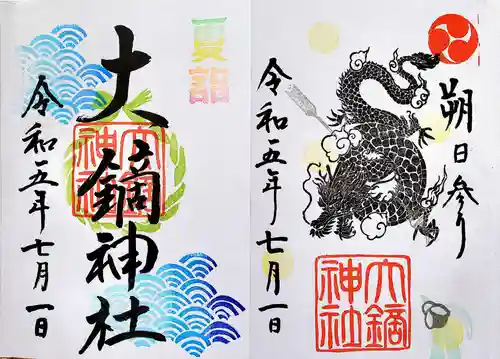 夏詣
大鏑神社
大鏑神社
令和五年七月一日
朔日参り
令和五年七月一日
大鏑神社